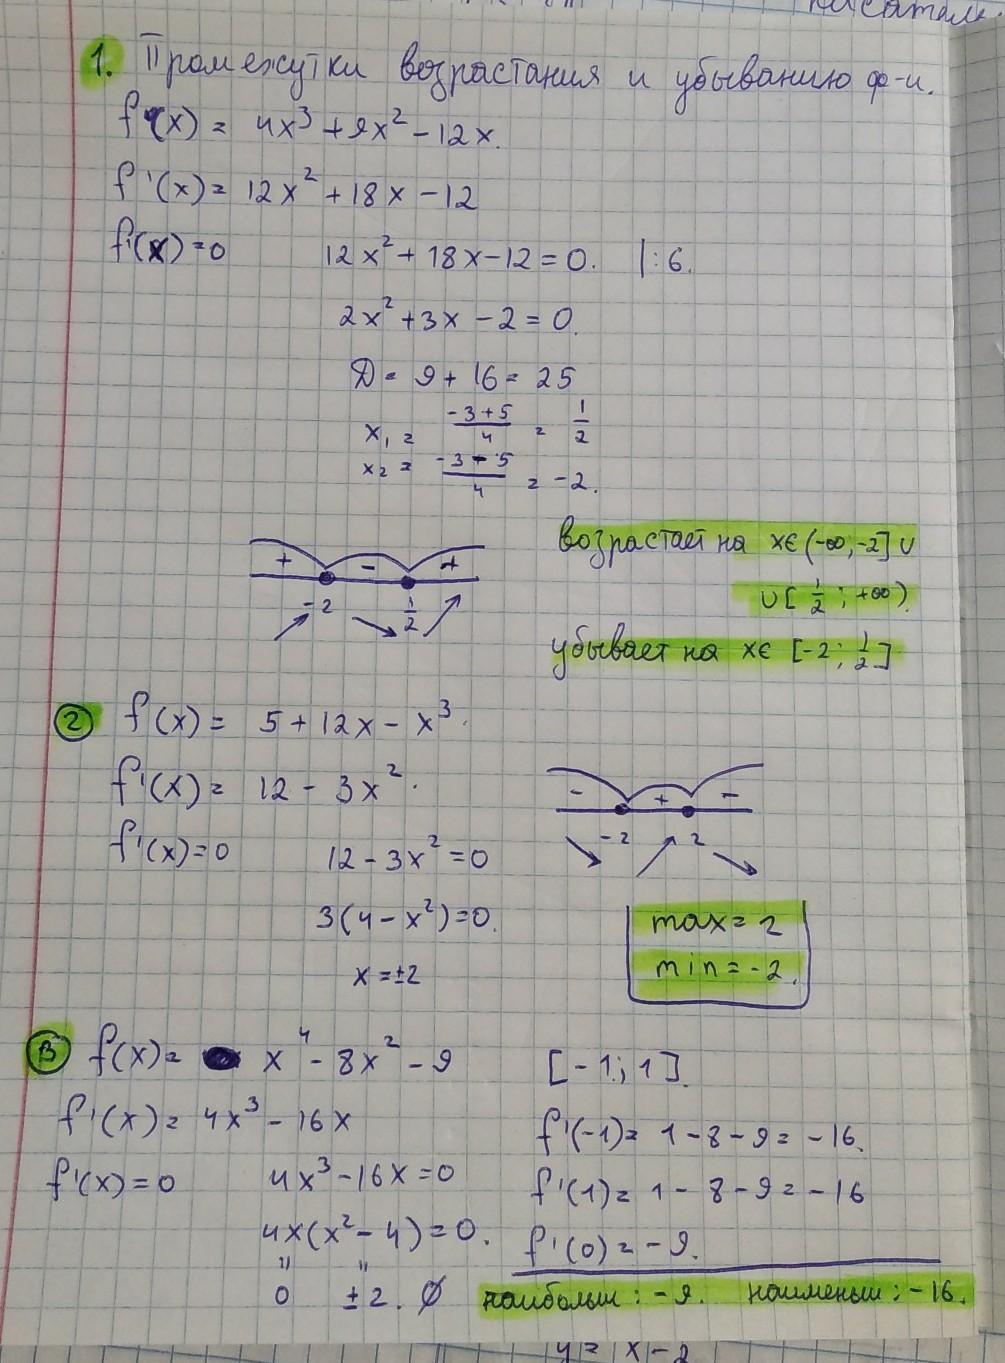 1. Промежутки возрастания и убыванию ф-и.
f(x) = 4x³ + 9x² - 12x.
f'(x) = 12x² + 18x - 12
f'(x) = 0 12x² + 18x - 12 = 0. |:6.
2x² + 3x - 2 = 0.
D = 9 + 16 = 25
x₁ = (-3+5)/4 = 1/2
x₂ = (-3-5)/4 = -2.
+ - +
-2 1/2
возрастает на x∈(-∞;-2] ∪
∪[1/2; +∞).
убывает на x∈ [-2; 1/2]
2 f(x) = 5 + 12x - x³.
f'(x) = 12 - 3x².
- + -
-2 2
f'(x) = 0 12 - 3x² = 0
3(4 - x²) = 0.
x = ±2
max = 2
min = -2.
3 f(x) = x⁴ - 8x² - 9 [-1; 1].
f'(x) = 4x³ - 16x
f'(-1) = 1 - 8 - 9 = -16.
f'(x) = 0 4x³ - 16x = 0
f'(1) = 1 - 8 - 9 = -16
4x(x² - 4) = 0.
f'(0) = -9.
" "
0 ±2. ∅
наибольш: -9. наименьш: -16.
y = x - 2